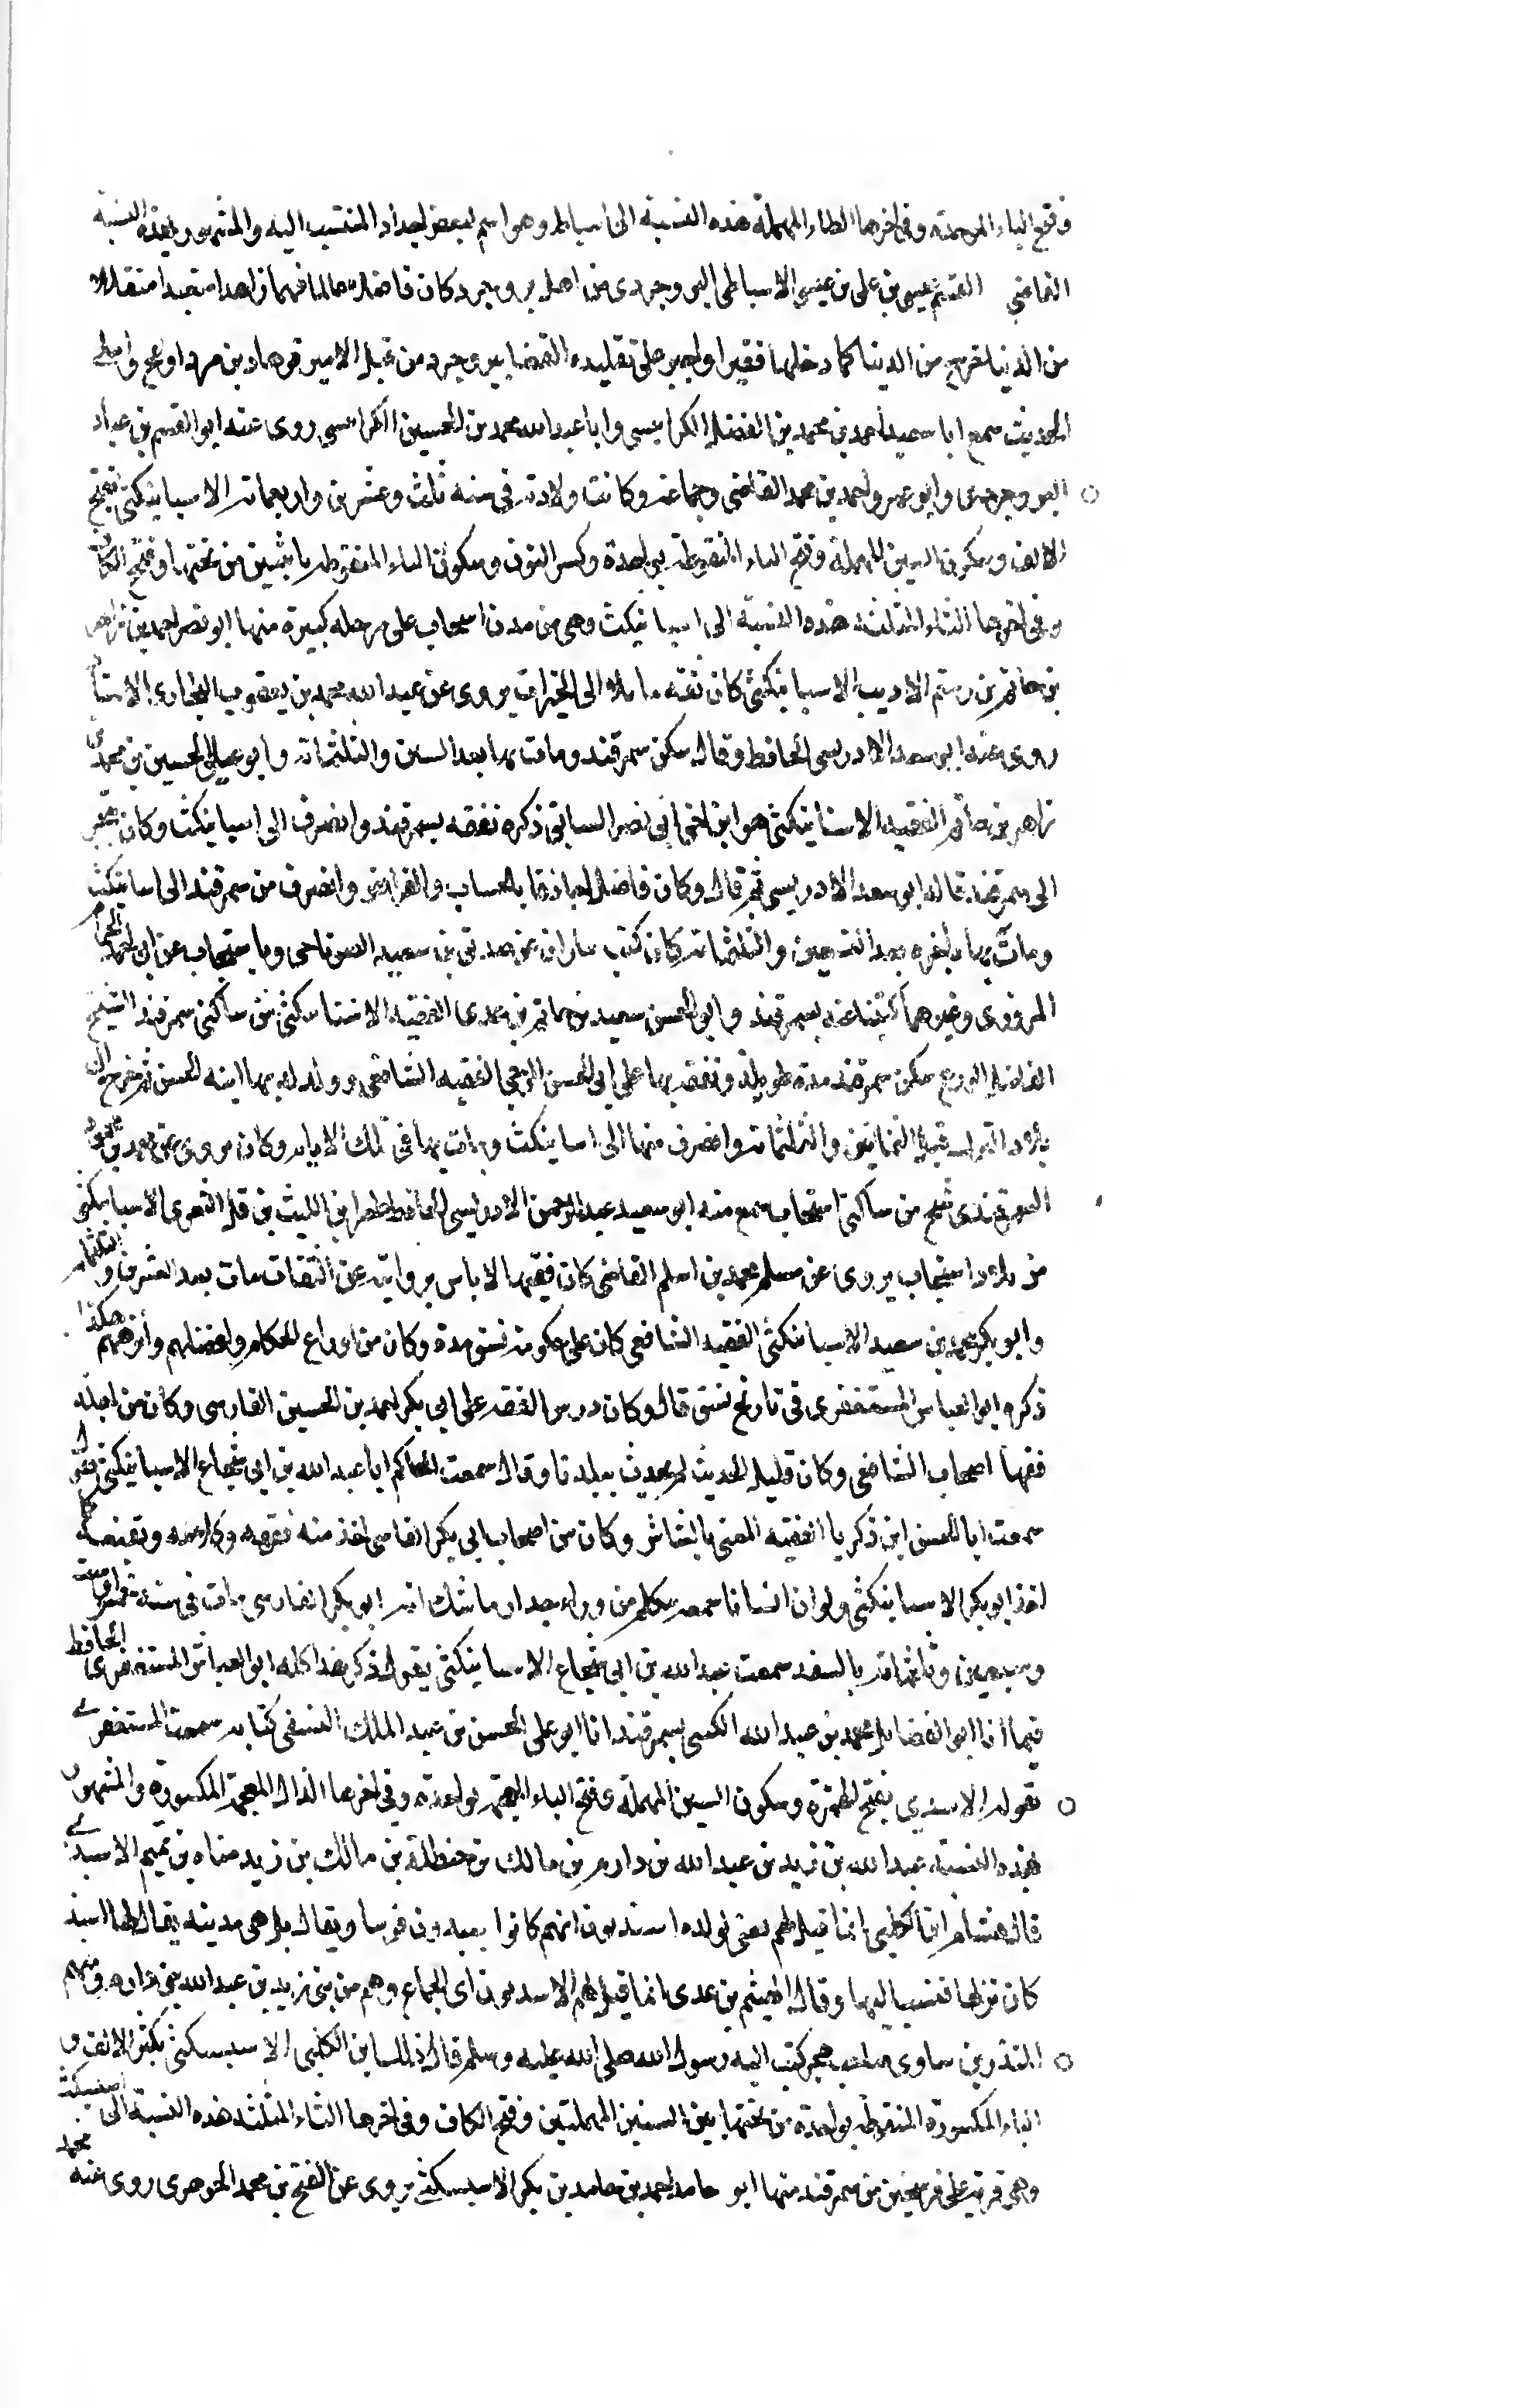 وفتح الباء الموحدة وفي اخرها الطاء المهملة هذه النسبة الى اسباط وهو اسم لبعض اجداد المنتسب اليه والمشهور بهذه النسبة
القاضي القسم عيسى بن علي بن عيسى الاسباطي البروجردي من اهل بروجرد كان فاضلا عالما فهما زاهدا متعبدا متقللا
من الدنيا خرج من الدنيا كما دخلها فقيرا واجبر على تقليده القضا ببروجرد من قبل الامير فرهاد بن مرداويج واملى
الحديث سمع ابا سعيد احمد بن محمد بن الفضل الكرابيسي وابا عبد الله محمد بن الحسين الكرابيسي روى عنه ابو القسم بن عباد
البروجردي وابو عمرو احمد بن محمد القاضي وجماعة وكانت ولادته في سنة ثلث وعشرين واربعمائة الاسبانيكثي بفتح
الالف وسكون السين المهملة وفتح الباء المنقوطة بواحدة وكسر النون وسكون الياء المنقوطة باثنتين من تحتها وفتح الكاف
وفي اخرها الثاء المثلثة هذه النسبة الى اسبانيكث وهي من مدن اسبيجاب على مرحلة كبيرة منها ابو نصر احمد بن زاهر
بن حاتم بن رستم الاديب الاسبانيكثي كان ثقة مائلا الى الخيرات يروي عن عبد الله محمد بن يعقوب البخاري الاستاذ
روى عنه ابو سعد الادريسي الحافظ وقال سكن سمرقند ومات بها بعد الستين والثلثمائة وابو علي الحسين بن محمد بن
زاهر بن حاتم الفقيه الاسبانيكثي هو ابن اخي ابي نصر السابق ذكره تفقه بسمرقند وانصرف الى اسبانيكث وكان يجئ
الى سمرقند قاله ابو سعد الادريسي ثم قال وكان فاضلا حاذقا بالحساب والفرائض وانصرف من سمرقند الى اسبانيكث
ومات بها باخره بعد التسعين والثلثمائة كان كتب عن صديق بن سعيد الصوناخي وباسبيجاب عن ابي احمد
المروزي وغيرهما كتبنا عنه بسمرقند وابو الحسن سعيد بن حاتم بن عدي الفقيه الاسبانيكثي من ساكني سمرقند الشيخ
الفاضل الورع سكن سمرقند مدة طويلة وتفقه بها على ابي الحسن الفقيه الشافعي وولد له بها ابنه الحسن ثم خرج الى
بلاد الترك قبل الثمانين والثلثمائة وانصرف منها الى اسبانيكث ومات بها في تلك الايام وكان يروي عن محمد بن
السمرقندي شيخ من ساكني اسبيجاب سمع منه ابو سعيد عبد الرحمن الادريسي الحافظ بن الليث بن الاسبانيكثي
من بلاد اسبيجاب يروي عن مسلم محمد بن اسلم القاضي كان فقيها لا باس بروايته عن الثقات مات بعد العشرين والثلثمائة
وابو بكر محمد بن سعيد الاسبانيكثي الفقيه الشافعي كان على حكومة نسف مدة وكان من اوراع الحكام وافضلهم وانزههم هكذا
ذكره ابو العباس المستغفري في تاريخ نسف قال وكان درس الفقه على ابي بكر احمد بن الحسين الفارسي وكان من اجلة
فقهاء اصحاب الشافعي وكان قليل الحديث لم يحدث ببلدنا وقال سمعت الحاكم ابا عبد الله بن ابي شجاع الاسبانيكثي يقول
سمعت ابا الحسن ابن زكريا الفقيه المفتي بالشاش وكان من اصحاب ابي بكر الفارسي اخذ منه فقهه وكلامه
اخذ ابو بكر الاسبانيكثي ولو ان انسانا سمعه يتكلم من وراء جدار ما شك انه ابو بكر الفارسي مات في سنة
وسبعين وثلثمائة بالسغد سمعت عبد الله بن ابي شجاع الاسبانيكثي يقول ذكر هذا كله ابو العباس المستغفري الحافظ
فيما انا ابو الفضائل محمد بن عبد الله الكسي بسمرقند انا ابو علي الحسن بن عبد الملك النسفي كتابة سمعت المستغفري
يقوله الاسبذي بفتح الهمزة وسكون السين المهملة وفتح الباء المعجمة بواحدة وفي اخرها الذال المعجمة المكسورة والمشهور
بهذه النسبة عبد الله بن زيد بن عبد الله بن دارم بن مالك بن حنظلة بن مالك بن زيد مناة بن تميم الاسبذي
قال هشام ابن الكلبي انما قيل لهم يعني لولده اسبذيون انهم كانوا يعبدون فرسا ويقال بل هي مدينة يقال لها اسبذ
كان نزلها فنسب اليها وقال الهيثم بن عدي انما قيل لهم الاسبذيون اي الجماع وهم من بني زيد بن عبد الله بن دارم فمنهم
المنذر بن ساوى صاحب هجر كتب اليه رسول الله صلى الله عليه وسلم قال ذلك ابن الكلبي الاسبسكثي بكسر الالف و
الباء المكسورة المنقوطة بواحدة من تحتها بين السينين المهملتين وفتح الكاف وفي اخرها الثاء المثلثة هذه النسبة الى اسبسكث
وهي قرية على فرسخين من سمرقند منها ابو حامد احمد بن حامد بن بكر الاسبسكثي يروي عن الفتح بن محمد الجوهري روى عنه محمد